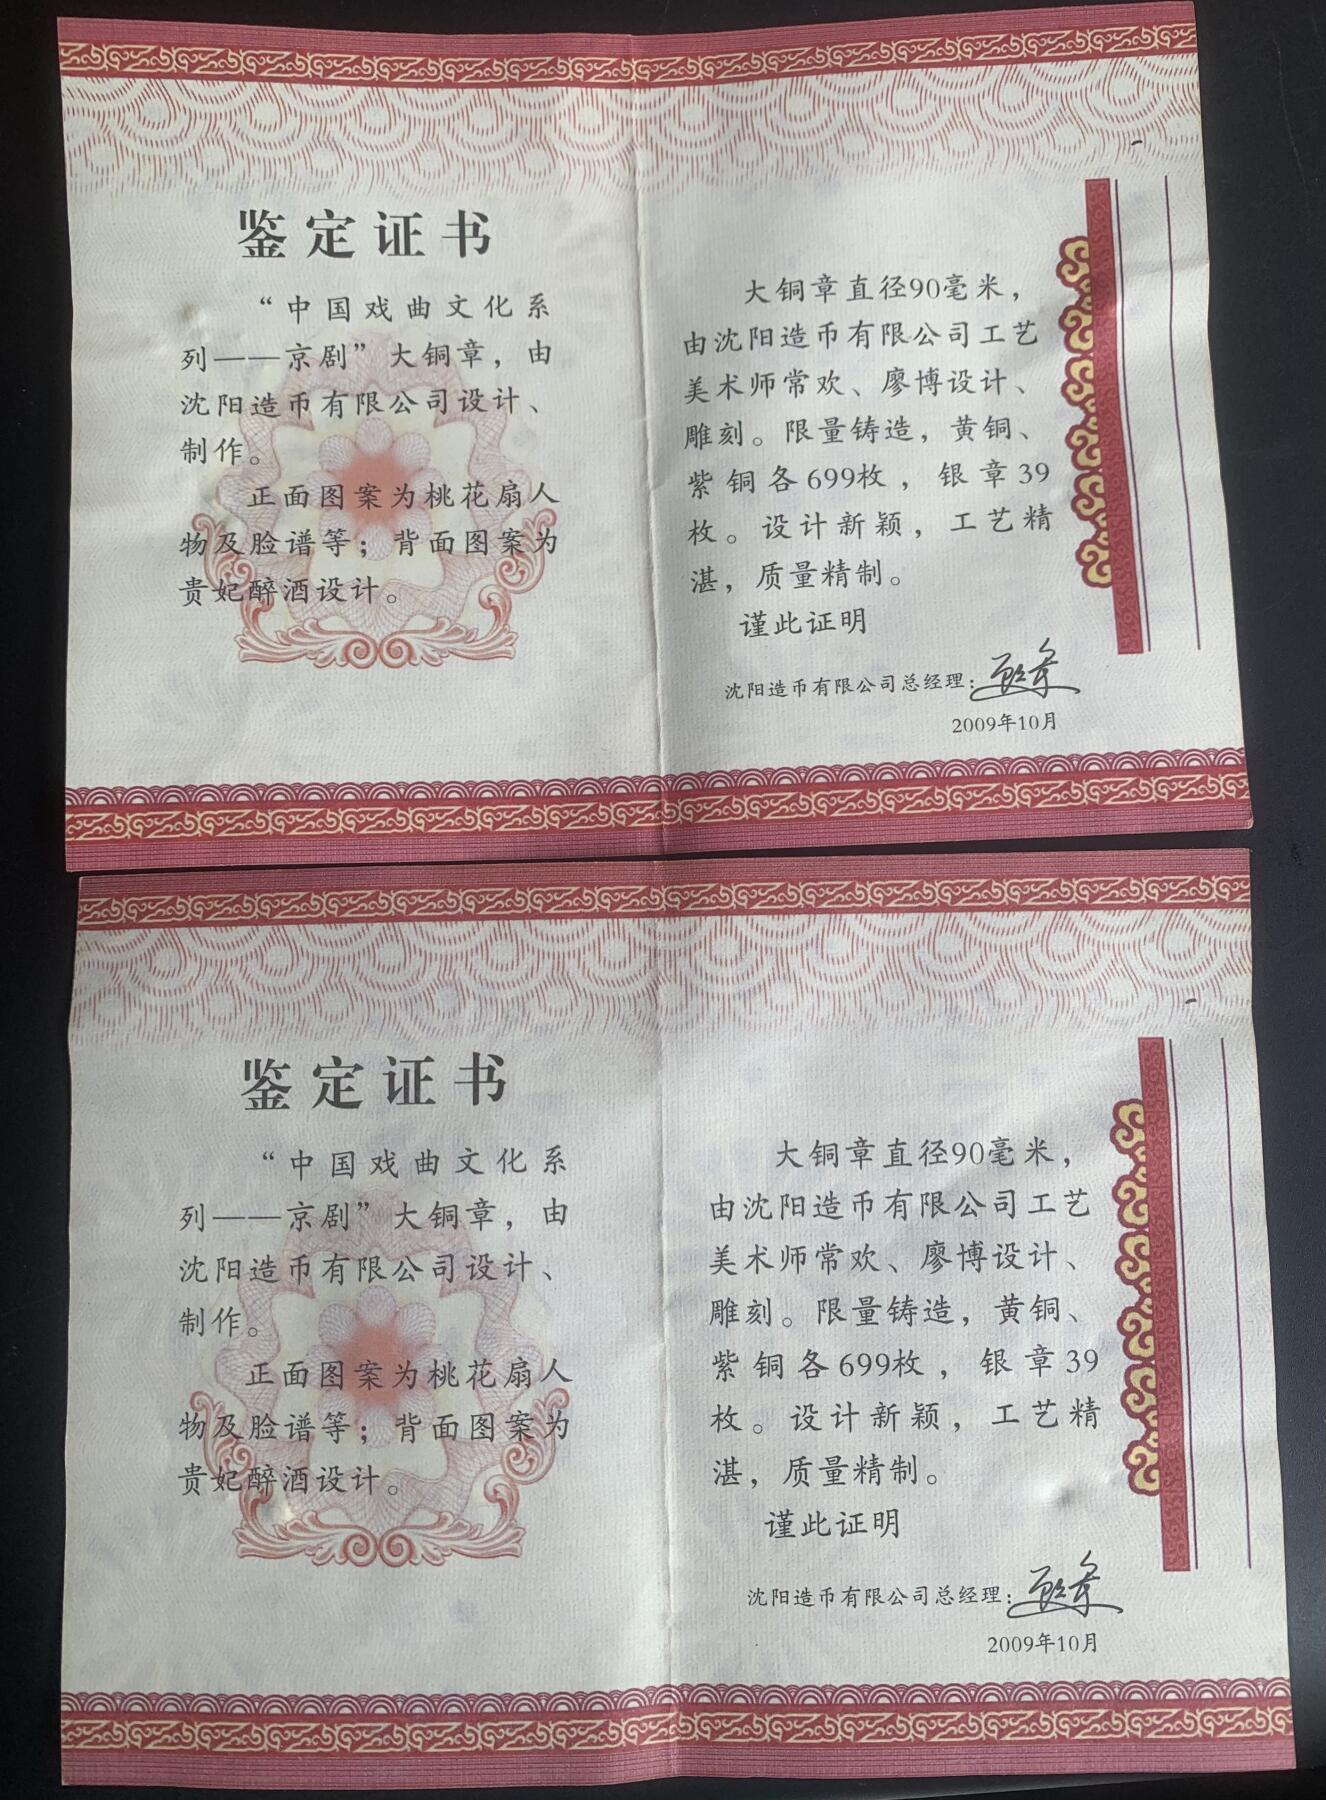 鉴定证书
“中国戏曲文化系
列——京剧”大铜章，由
沈阳造币有限公司设计、
制作。
正面图案为桃花扇人
物及脸谱等；背面图案为
贵妃醉酒设计。
大铜章直径90毫米，
由沈阳造币有限公司工艺
美术师常欢、廖博设计、
雕刻。限量铸造，黄铜、
紫铜各699枚，银章39
枚。设计新颖，工艺精
湛，质量精制。
谨此证明
沈阳造币有限公司总经理：
2009年10月
鉴定证书
“中国戏曲文化系
列——京剧”大铜章，由
沈阳造币有限公司设计、
制作。
正面图案为桃花扇人
物及脸谱等；背面图案为
贵妃醉酒设计。
大铜章直径90毫米，
由沈阳造币有限公司工艺
美术师常欢、廖博设计、
雕刻。限量铸造，黄铜、
紫铜各699枚，银章39
枚。设计新颖，工艺精
湛，质量精制。
谨此证明
沈阳造币有限公司总经理：
2009年10月